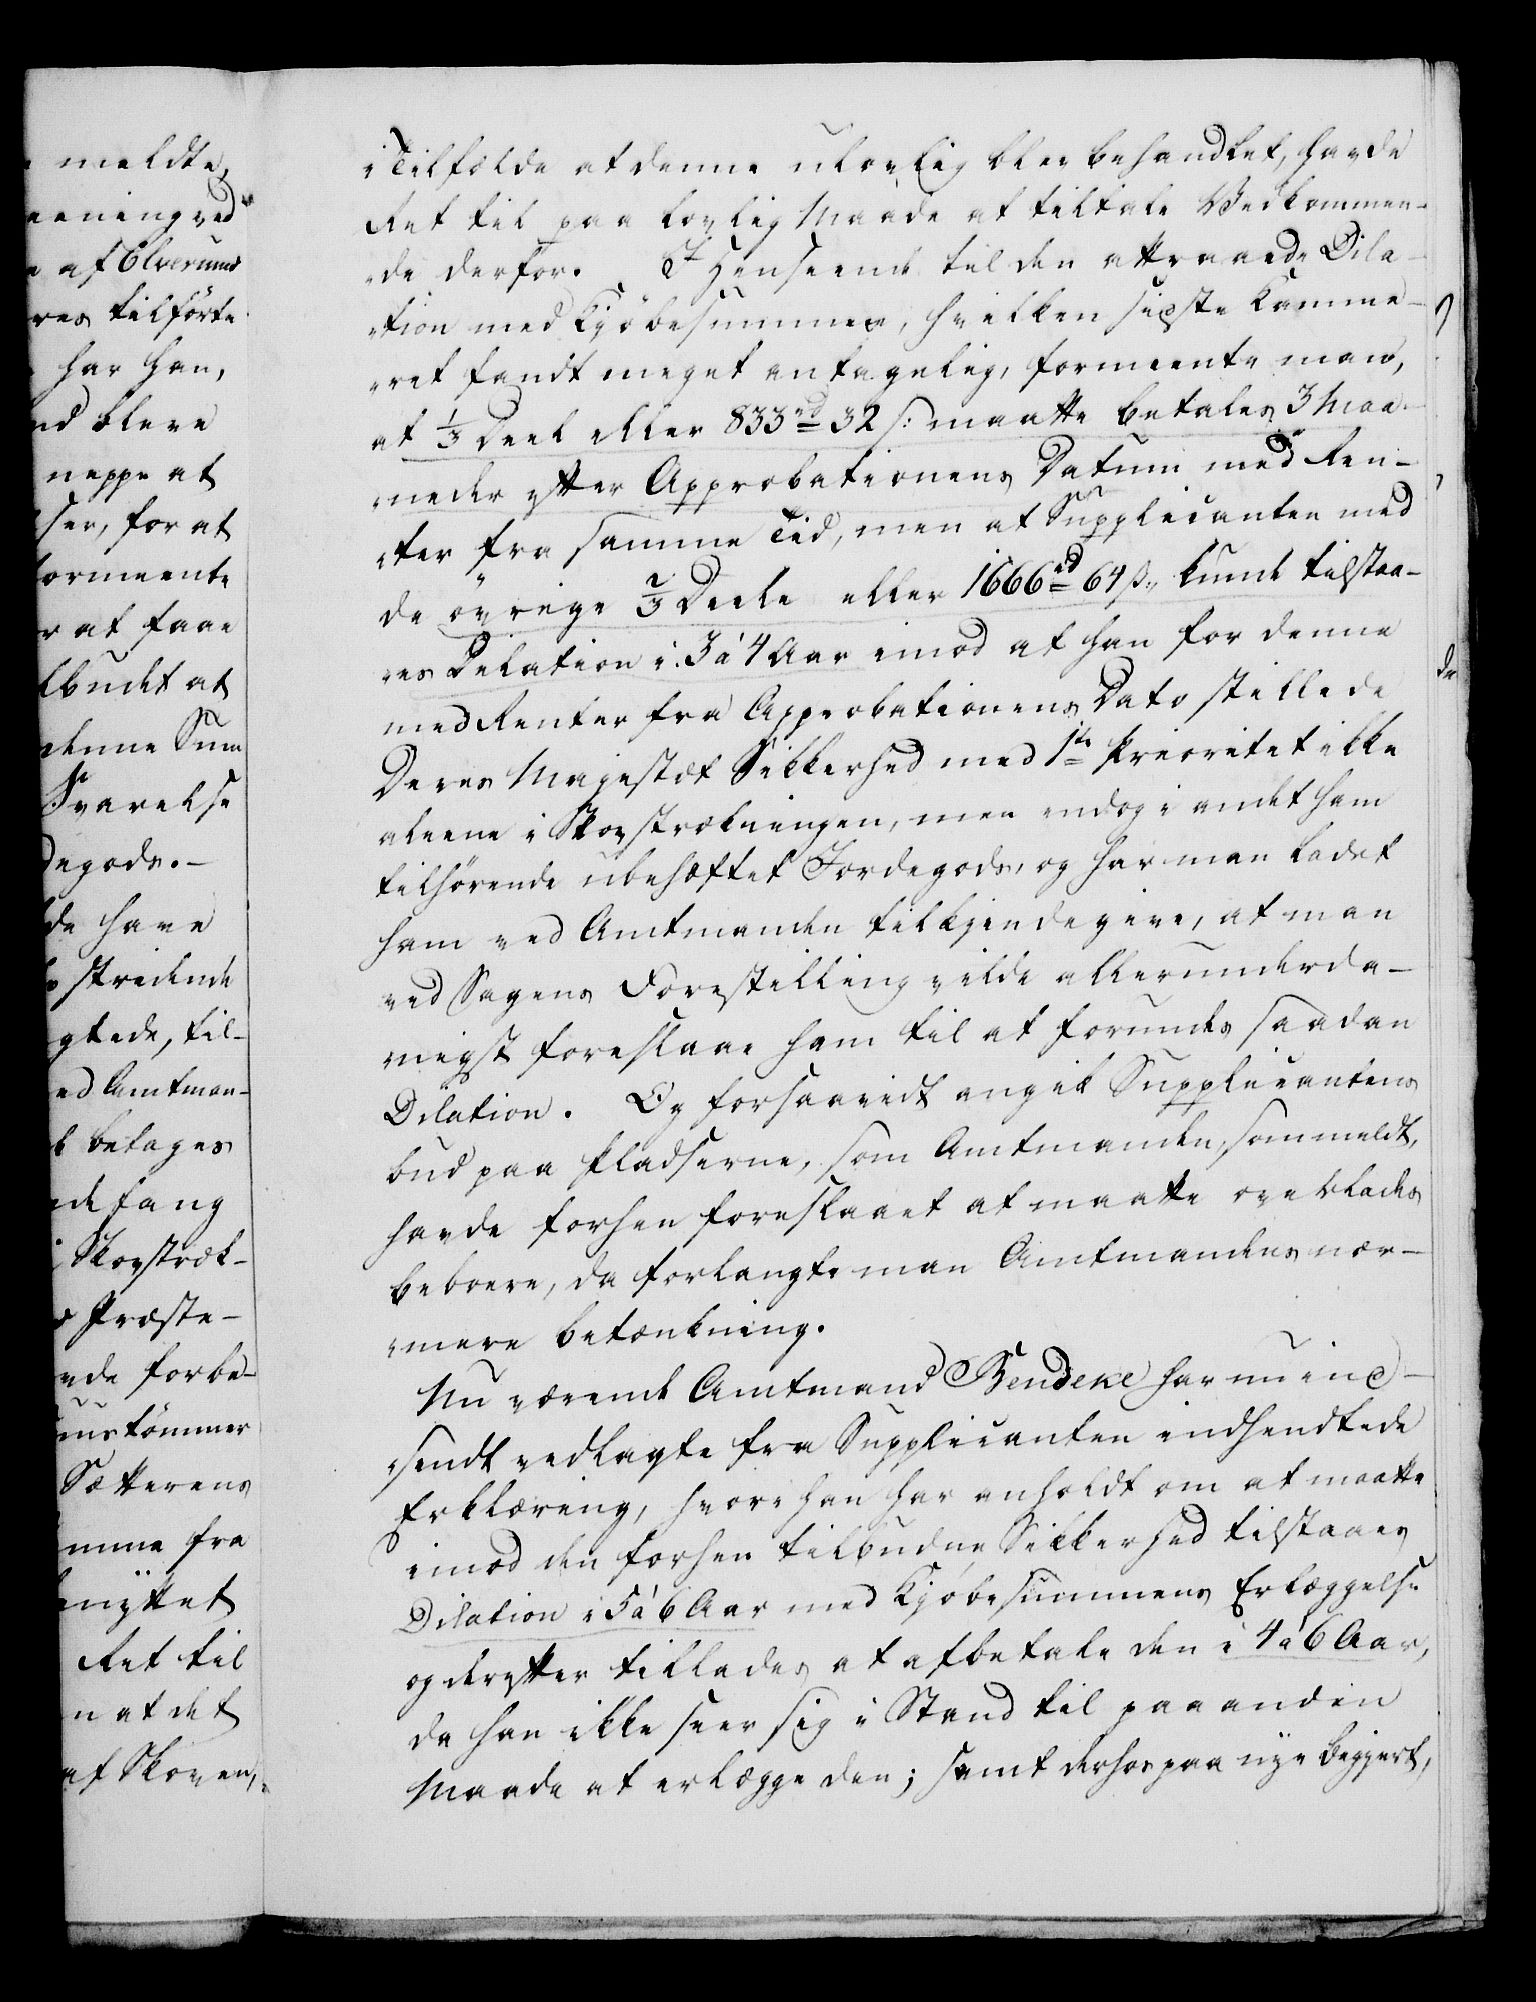 meldte,
eening ved
af Elverums
res tilförte
har han,
nd bleve
neppe at
ser, for at
formeente
r at faae
lbudet at
denne Sum
Svarelse
degods.-
de have
stridende
gtede, til-
ed Amtman-
t betages
de fang
i Skovstræk-
Præste-
nde forbe-
uustömmer
Sætterens
mme fra
enyttet
Ret til
n at det
af Skoven,
i Tilfælde at denne ulovlig blev behandlet, havde
Ret til paa lovlig Maade at tiltale Vedkommen-
de derfor. I Henseende til den attraaede Dila-
tion med Kjöbesummen, hvilken sidste Kamme-
ret fandt meget antagelig, formeente man,
at 1/3 Deel eller 833 rd 32 s: maatte betales 3 Maa-
neder efter Approbationens Datum med Ren-
ter fra samme Tid, men at Supplicanten med
de övrige 2/3 Deele eller 1666 rd 64 s, kunde tilstaa-
es Dilation i 3 á 4 Aar imod at han for denne
med Renter fra Approbationens Dato stillede
Deres Majestæt Sikkerhed med 1te Prioritet ikke
aleene i Skovstrækningen, men endog i andet ham
tilhörende ubehæftet Jordegods, og har man ladet
ham ved Amtmanden tilkjendegive, at man
ved Sagens Forestilling vilde allerunderda-
nigst foreslaae ham til at forundes saadan
Dilation. Og forsaavidt angik Supplicantens
bud paa Pladserne, som Amtmanden, som meldt,
havde forhen foreslaaet at maatte overlades
beboere, da forlangte man Amtmandens nær-
mere betænkning.
Nu værende Amtmand Bendeke har nu ind-
sendt vedlagte fra Supplicanten indhendtede
Erklæring, hvori han har anholdt om at maatte
imod den forhen tilbudne Sikkerhed tilstaaes
Dilation i 5 á 6 Aar med Kjöbesummens Erlæggelse
og derefter tillades at afbetale den i 4 á 6 Aar,
da han ikke seer sig i Stand til paa anden
Maade at erlægge den; samt derhos paa nye begjert,